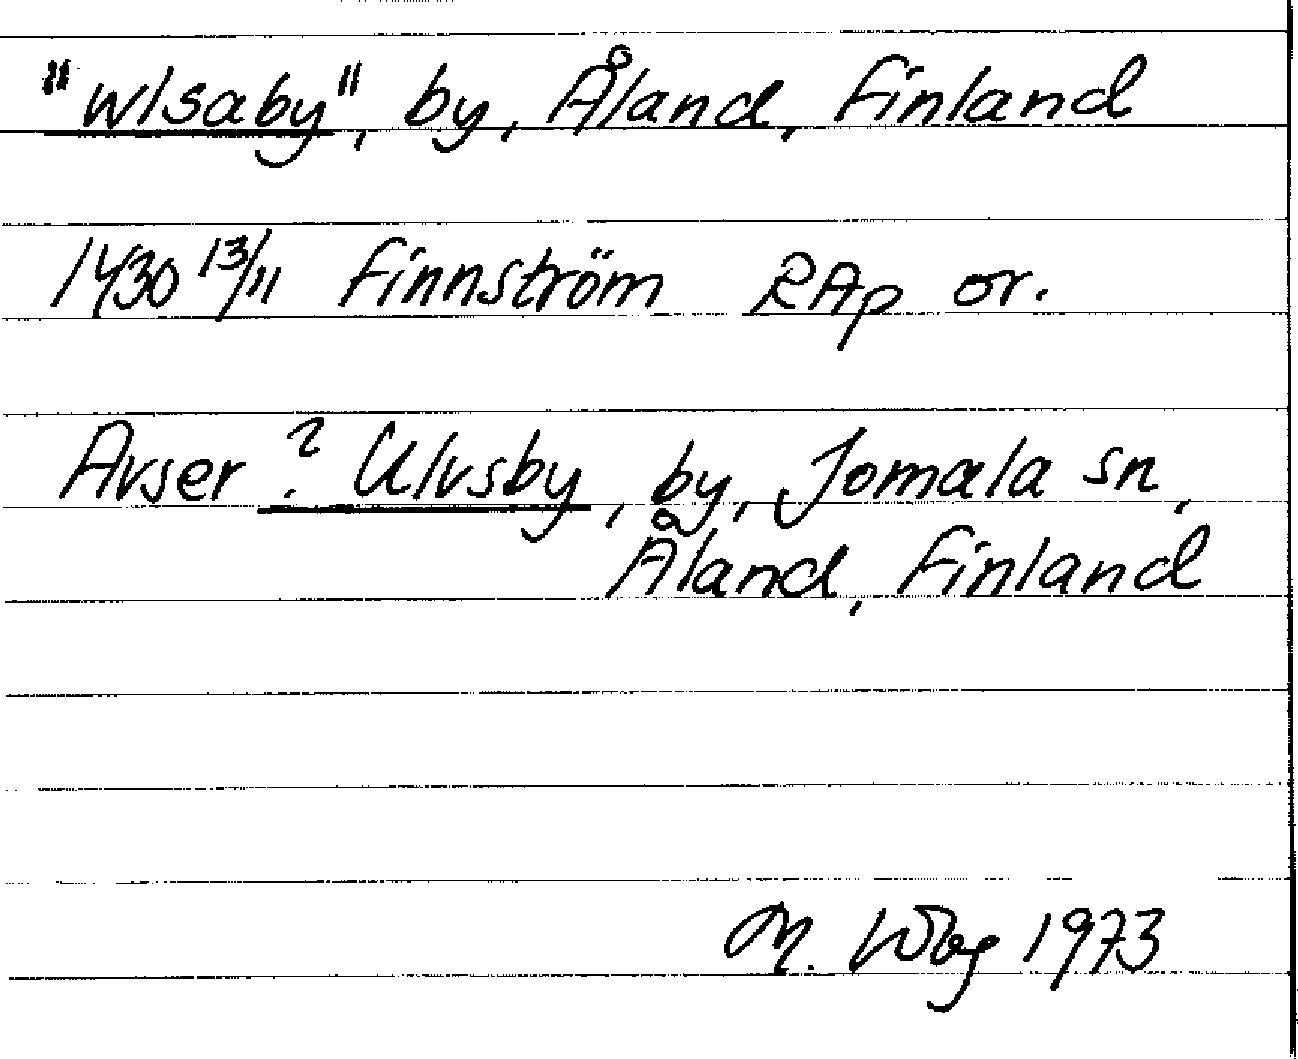 "wlsaby", by, Åland, Finland
1430 13/11 Finnström RAp or.
Avser ? Ulvsby, by, Jomala sn,
Åland, Finland
M. 1973